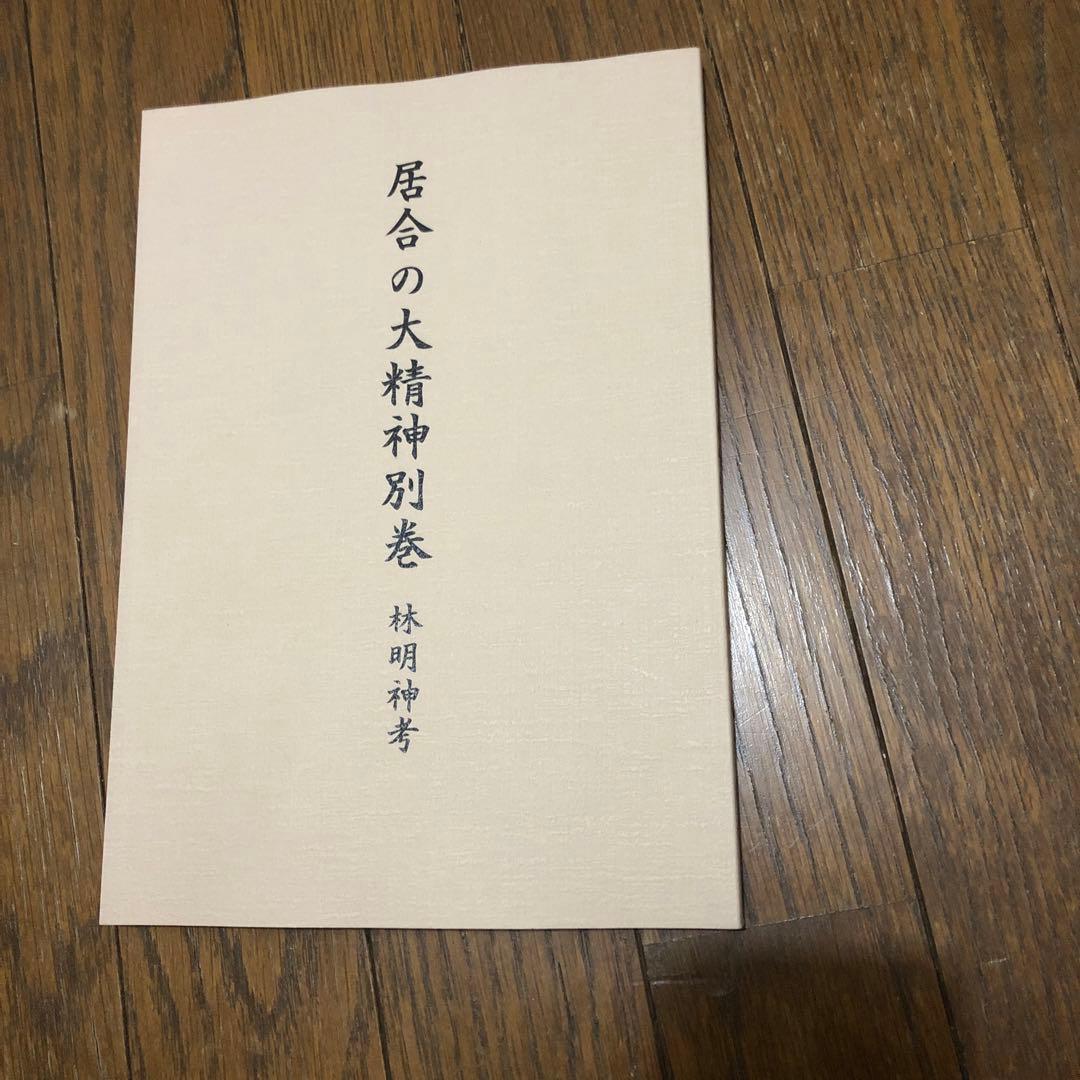 居合の大精神別巻
林明神考